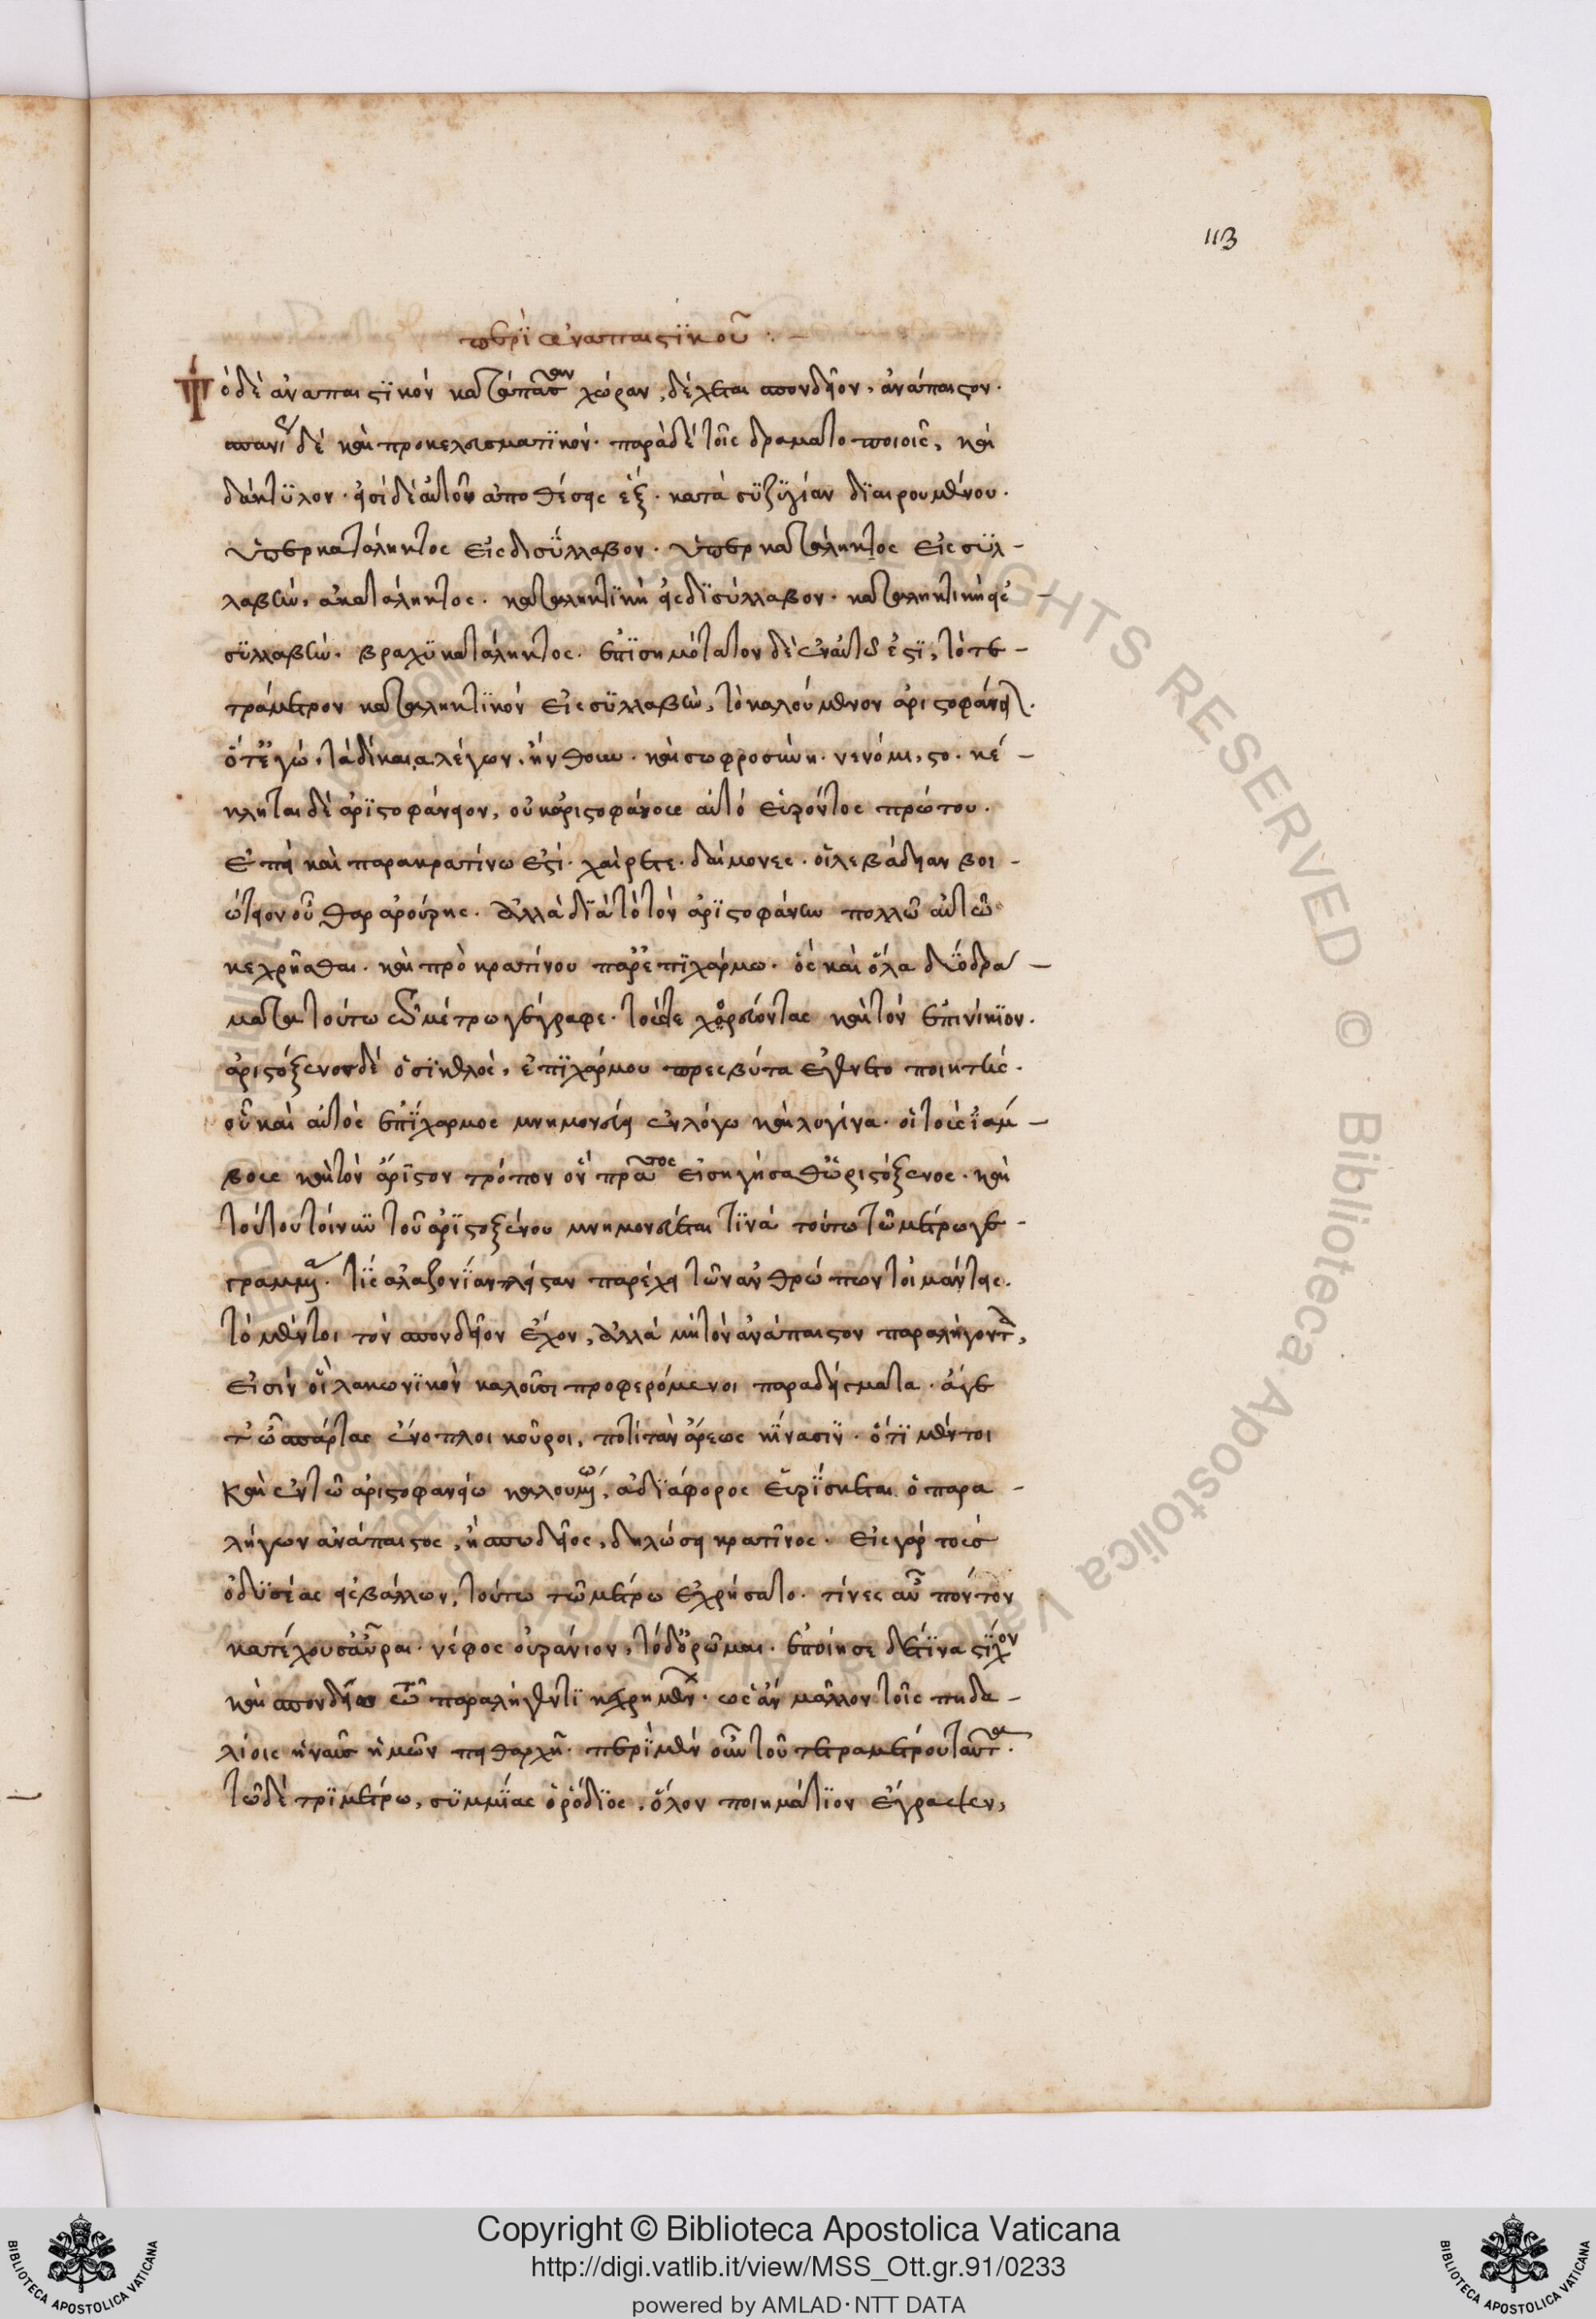 113
περὶ ἀναπαιστικοῦ
Τὸ δὲ ἀναπαιστικὸν κατὰ πᾶσαν χώραν, δέχεται σπονδεῖον, ἀνάπαιστον.
σπανίως δὲ καὶ προκελευσματικόν. παρὰ δὲ τοῖς δραματοποιοῖς, καὶ
δάκτυλον. εἰσὶ δὲ αὐτοῦ ἀποθέσεις ἕξ. κατὰ συζυγίαν διαιρουμένου.
ὑπερκατάληκτος εἰς δισύλλαβον. ὑπερκατάληκτος εἰς συλ-
λαβήν, ἀκατάληκτος. καταληκτικὴ εἰς δισύλλαβον. καταληκτικὴ εἰς
συλλαβήν. βραχυκατάληκτος. ἐπισημότατον δὲ ἐν αὐτῷ ἐστι, τὸ τε-
τράμετρον καταληκτικὸν εἰς συλλαβήν, τὸ καλούμενον ἀριστοφάνειον.
ὅτ' ἐγώ, τὰ δίκαια λέγων, ἤνθουν. καὶ σωφροσύνη. νενόμιστο. κέ-
κληται δὲ ἀριστοφάνειον, οὐκ ἀριστοφάνους αὐτὸ εὑρόντος πρώτου.
ἐπεὶ καὶ παρὰ κρατίνω ἐστί. χαίρετε. δαίμονες. οἳ λεβάδειαν βοι-
ώτιον οὖθαρ ἀρούρης. ἀλλὰ διὰ τὸ τὸν ἀριστοφάνην πολλῶ αὐτῶ
κεχρῆσθαι. καὶ πρὸ κρατίνου παρ' ἐπιχάρμω. ὃς καὶ ὅλα δύο δρά-
ματα τούτω τῶ μέτρω γέγραφε. τούς τε χορεύοντας καὶ τὸν ἐπινίκιον.
ἀριστόξενος δὲ ὁ σικελὸς, ἐπιχάρμου πρεσβύτα ἐγένετο ποιητής.
οὗ καὶ αὐτὸς ἐπίχαρμος μνημονεύει ἐν λόγω καὶ λογίνα. οἱ τοὺς ἰάμ-
βους καὶ τὸν ἄριστον τρόπον ὃν πρῶτος εἰσηγήσαθ' ὡριστόξενος. καὶ
τούτου τοίνυν τοῦ ἀριστοξένου μνημονεύεται τινὰ τούτω τῶ μέτρω γε-
γραμμένα. τίς ἀλαζονίαν πλείσταν παρέχει τῶν ἀνθρώπων τοὶ μάντεις.
τὸ μέντοι τὸν σπονδεῖον ἔχον, ἀλλὰ μὴ τὸν ἀνάπαιστον παραλήγοντα,
εἰσὶν οἳ λακωνικὸν καλοῦσι προφερόμενοι παραδείγματα. ἄγε
τ' ὦ σπάρτας ἔνοπλοι κοῦροι, ποτὶ τὰν ἄρεως κίνασιν. ὅτι μέντοι
καὶ ἐν τῶ ἀριστοφανείω καλουμένω, ἀδιάφορος εὑρίσκεται ὁ παρα-
λήγων ἀνάπαιστος, ἢ σπονδεῖος, δηλώσει κρατῖνος. εἰς γὰρ τοὺς
ὀδυσσέας εἰσβάλλων, τούτω τῶ μέτρω ἐχρήσατο. τίνες αὖ πόντον
κατέχουσ' αὖραι. νέφος οὐράνιον, τόδ' ὁρῶμαι. ἐποίησε δέ τινα στίχον
καὶ σπονδείω τῶ παραλήγοντι κεχρημένον. ὡς ἂν μᾶλλον τοῖς πηδα-
λίοις ἡ ναῦς ἡμῶν πειθαρχῆ. περὶ μὲν οὖν τοῦ τετραμέτρου ταῦτα.
τῶ δὲ τριμέτρω, συμμίας ὁ ῥόδιος, ὅλον ποιημάτιον ἔγραψεν,
Copyright © Biblioteca Apostolica Vaticana
http://digi.vatlib.it/view/MSS_Ott.gr.91/0233
powered by AMLAD·NTT DATA